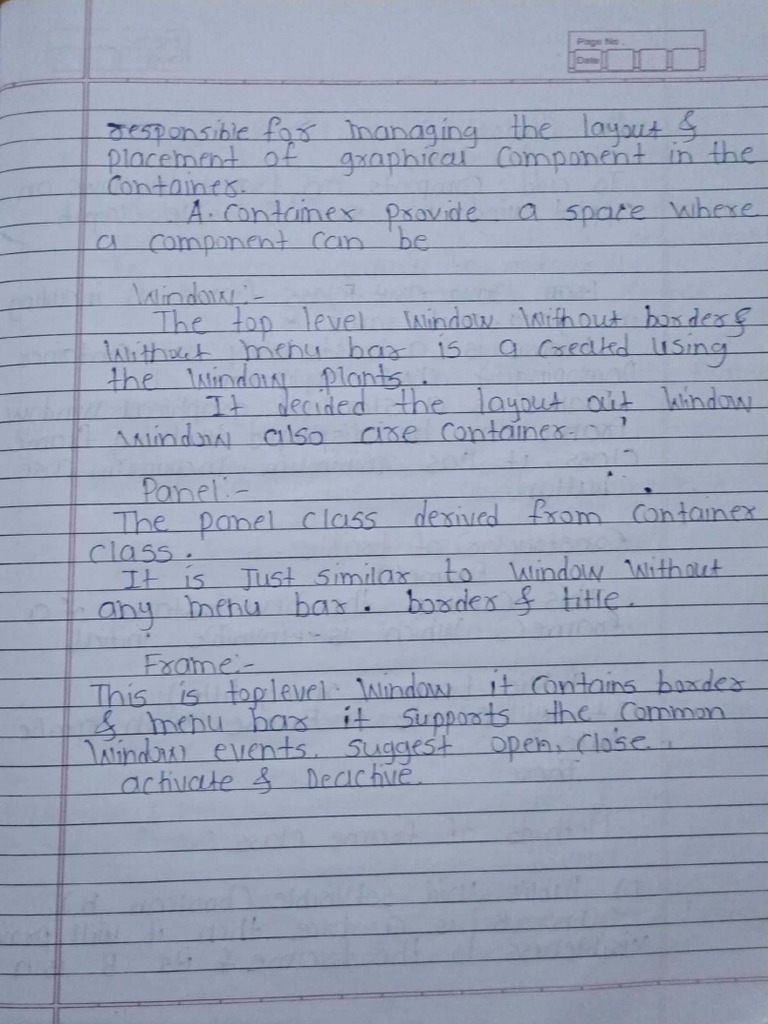 Page No.
Date
responsible for managing the layout &
placement of graphical component in the
container.
A. container provide a space where
a component can be
Window:-
The top level window without border &
without menu bar is a created using
the window plants.
It decided the layout out window
window also are container.
Panel:-
The panel class derived from container
class.
It is Just similar to window without
any menu bar. border & title.
Frame:-
This is toplevel window it contains border
& menu bar it supports the common
window events. suggest open, close,
activate & Decictive.